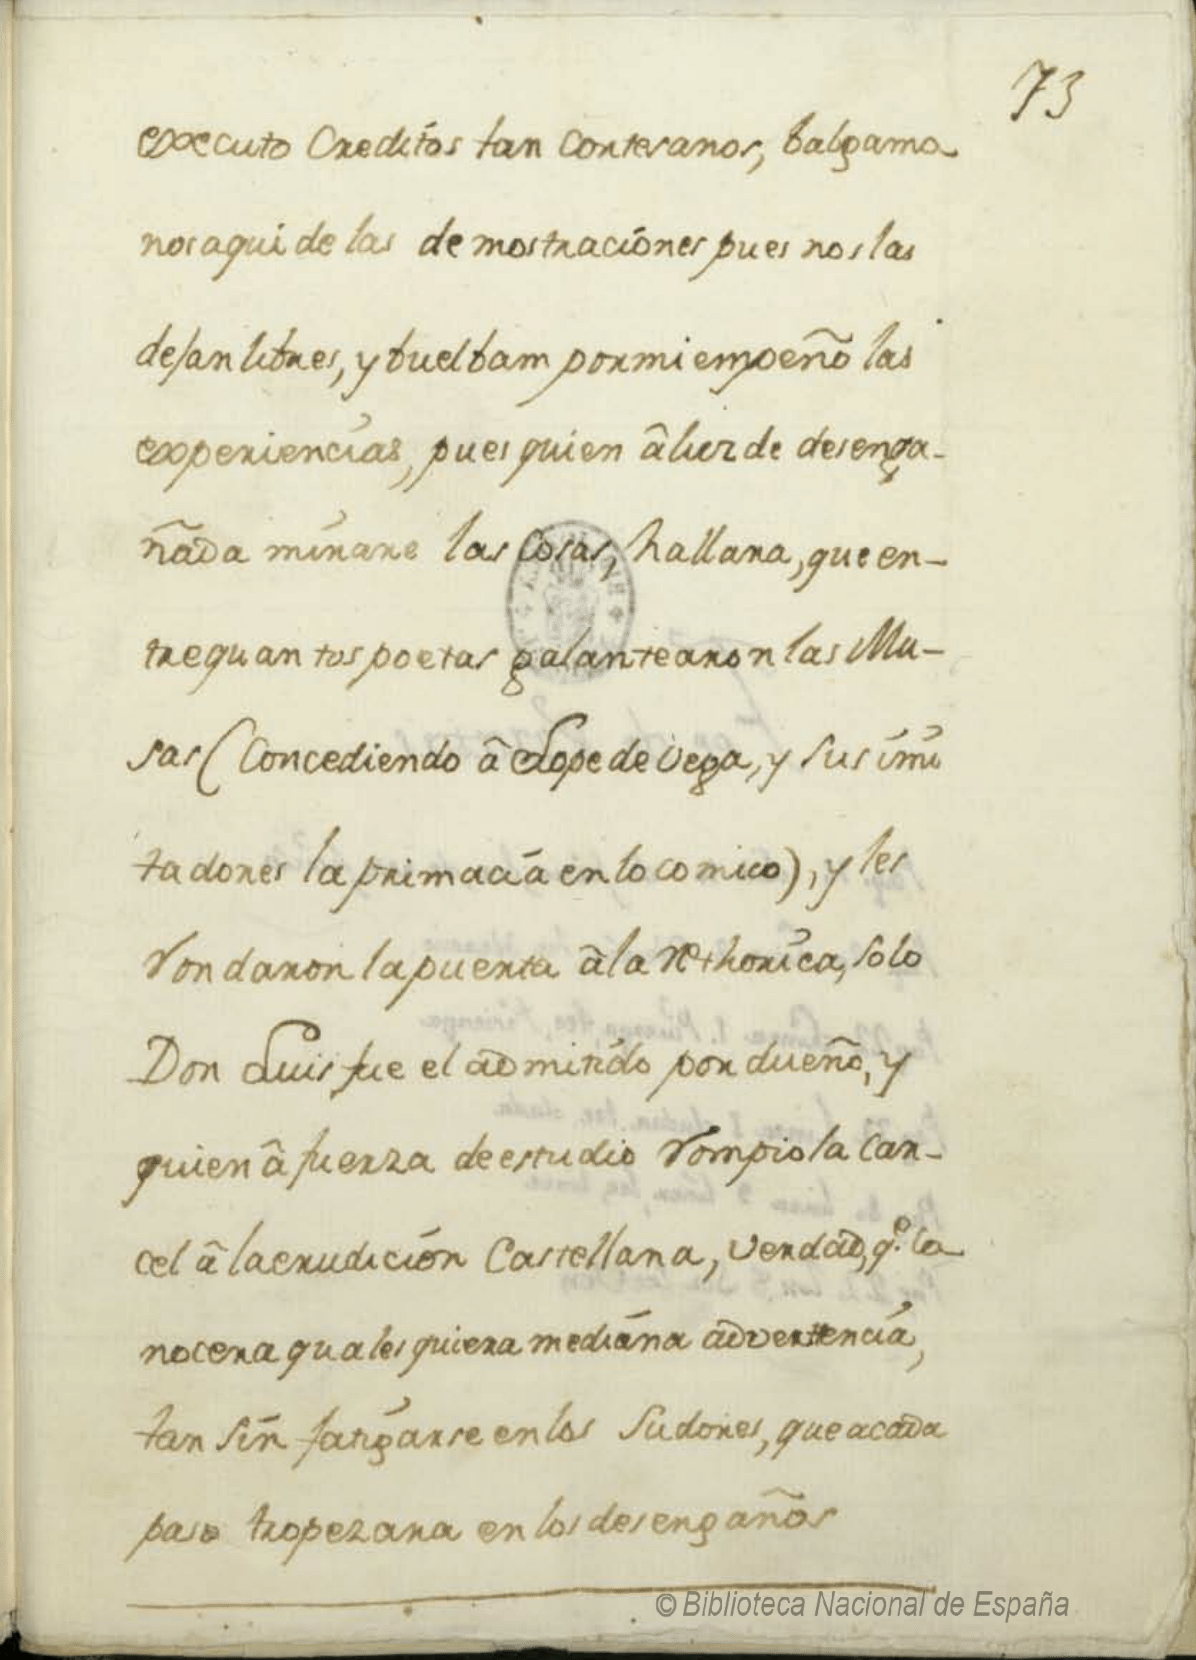 73
executo Creditos tan Cortesanos, balgamo
nos aqui de las demostraciónes pues nos las
dejan libres, y buelbam por mi empeño las
experiencias, pues quien â luz de desenga-
ñada mirare las Cosas, hallara, que en-
tre quantos poetas galantearon las Mu-
sas (Concediendo â Lope de Vega, y sus imi
tadores la primacia en lo comico), y les
Rondaron la puerta â la Rethorica, solo
Don Luis fue el admirído por dueño, y
quien â fuerza de estudio Rompio la Car-
cel â la erudición Castellana, Verdad, q.e la
nocera quales quiera mediána advertencia,
tan sin fatigarse en los Sudores, que acada
paso tropezara en los desengaños
© Biblioteca Nacional de España